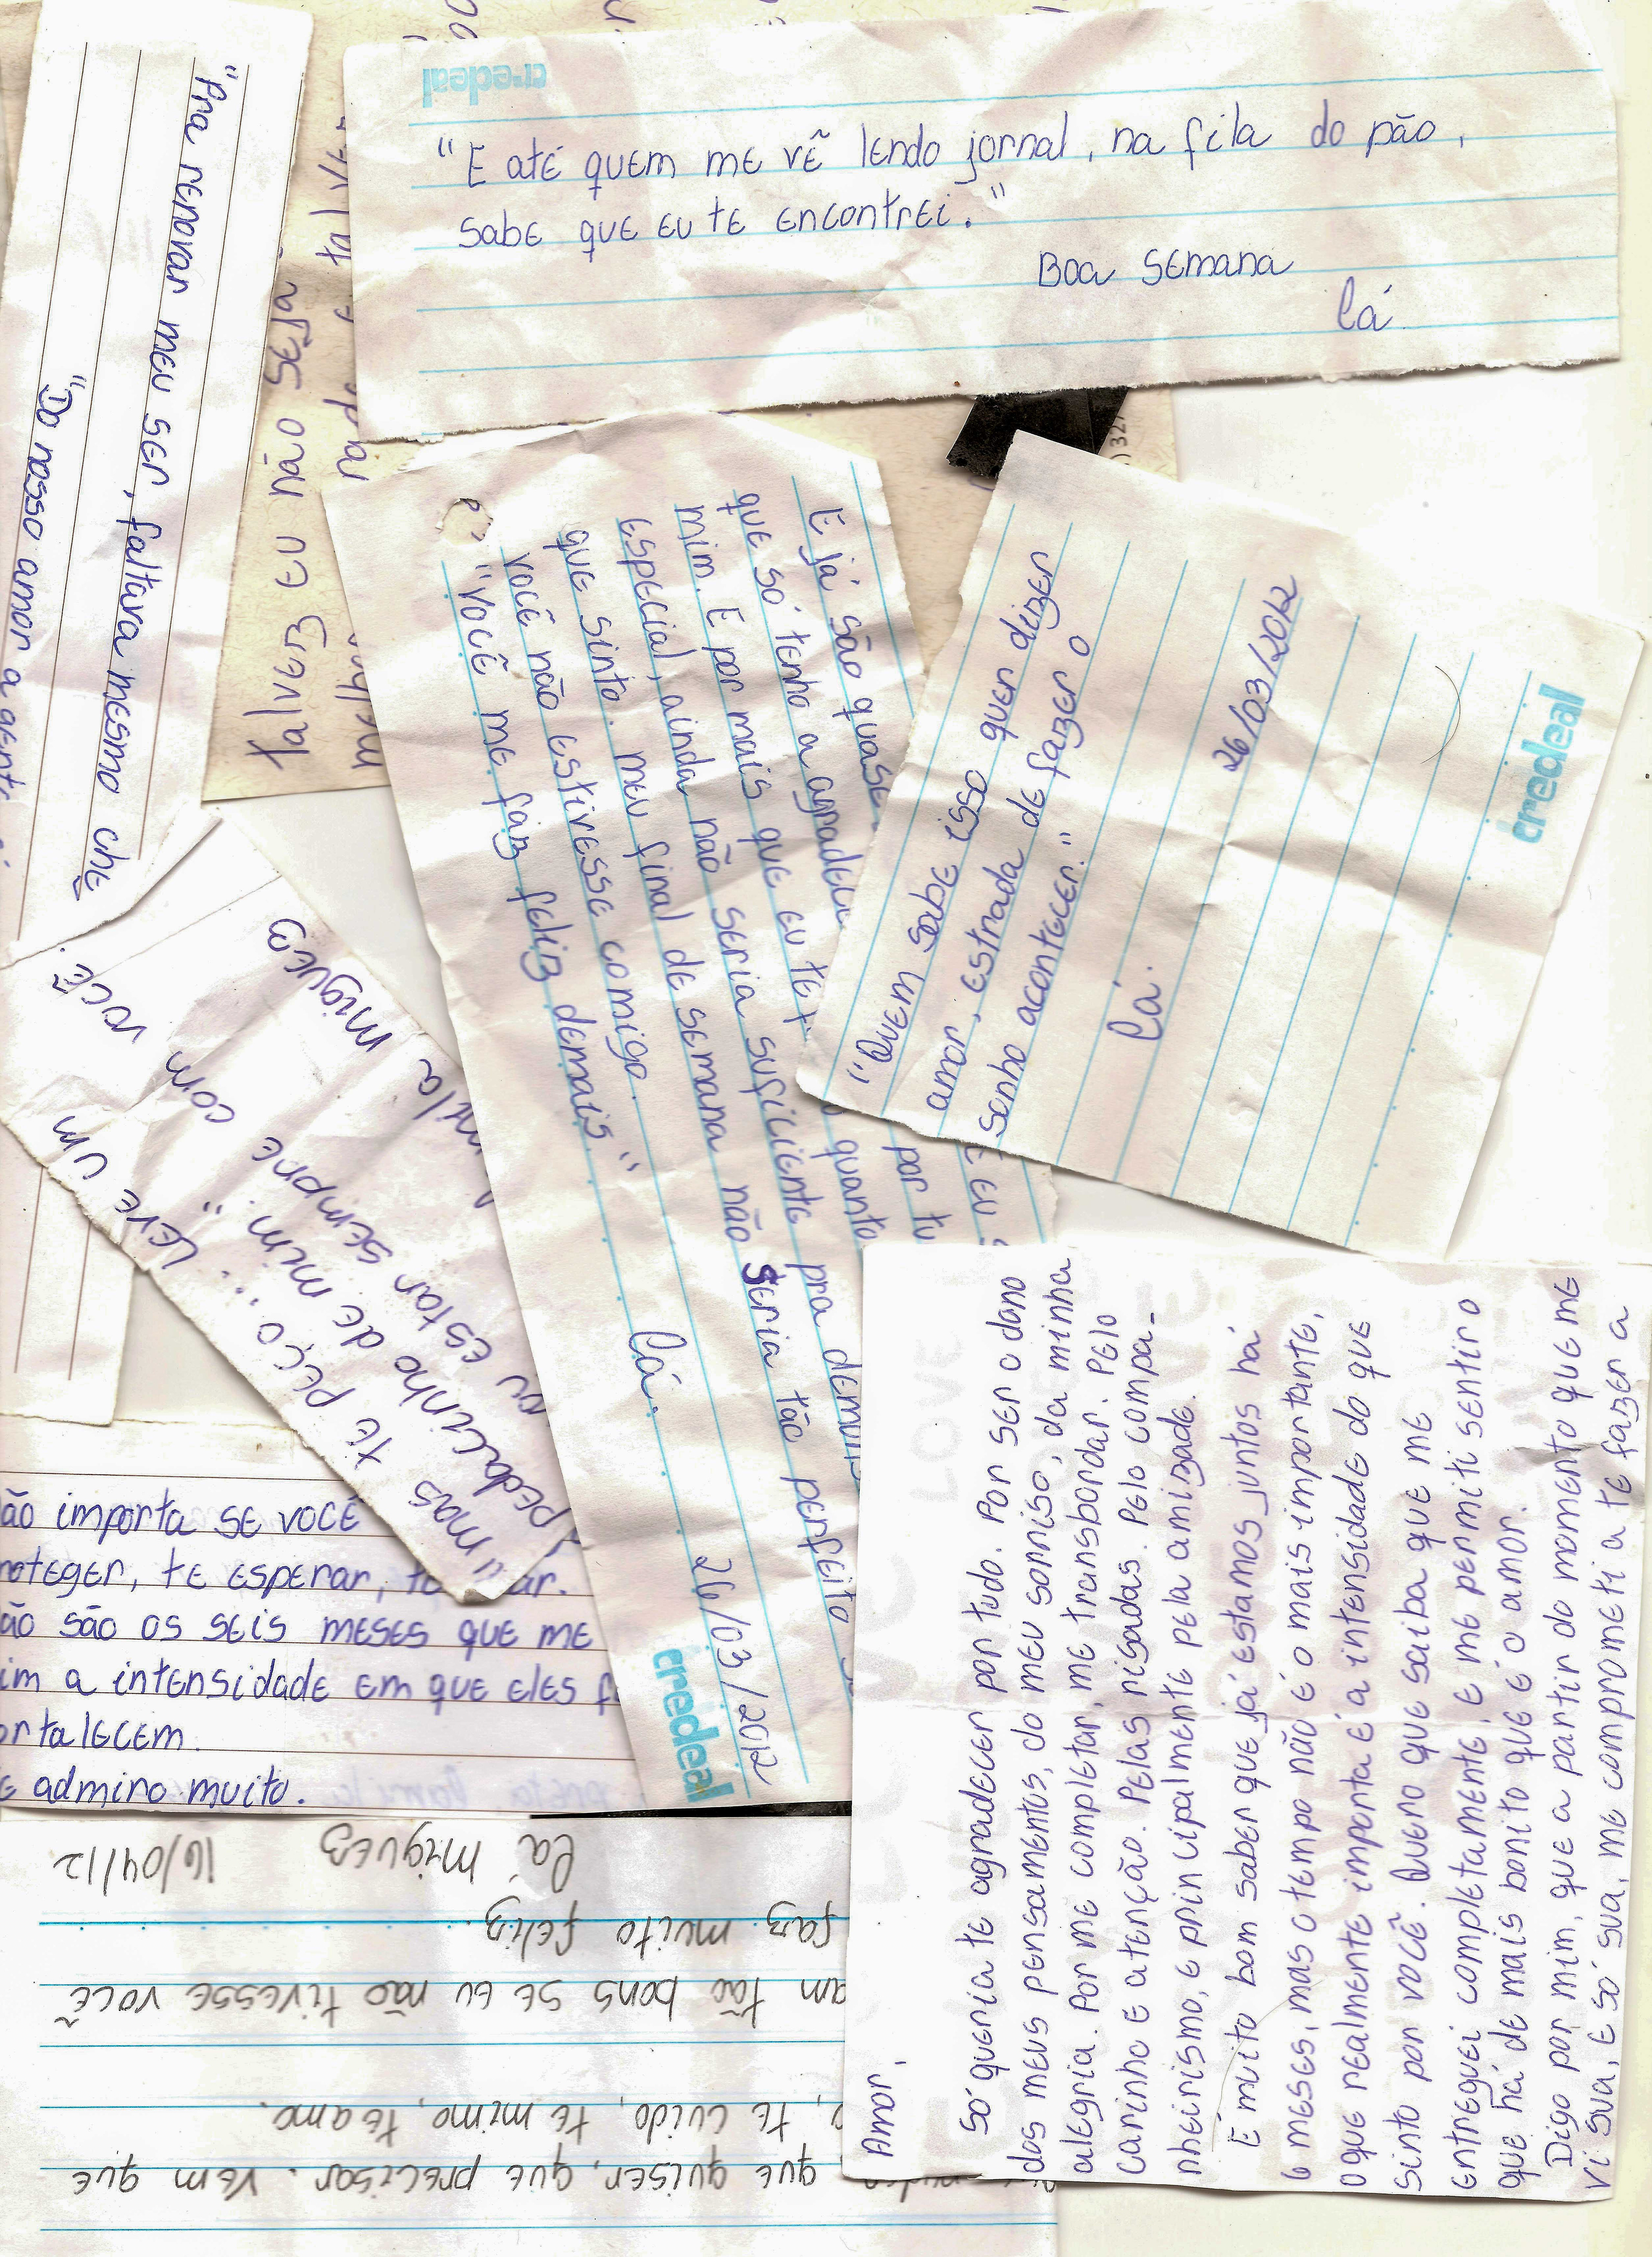 credeal
"E até quem me vê lendo jornal, na fila do pão,
sabe que eu te encontrei."
Boa semana
Cá
"Pra renovar meu ser, faltava mesmo che
"Do nosso amor a gente
talvez eu não seja
melhor
E já são quase
que só tenho a agradecer
mim. E por mais que eu te
especial, ainda não seria suficiente pra demons
que sinto. Meu final de semana não seria tão perfeito
você não estivesse comigo.
"Você me faz feliz demais."
Cá.
26/03/2012
credeal
quanto
por tu
"Quem sabe isso quer dizer
amor, estrada de fazer o
sonho acontecer."
Cá.
26/03/2012
credeal
miguez
você.
eu estar sempre com
pedacinho de mim."
mas te peço: leve um
ão importa se você
roteger, te esperar,
ão são os seis meses que me
im a intensidade em que eles f
ortalecem.
e admiro muito.
que quiser, que precisar. Vem que
, te cuido, te mimo, te amo.
am tão bons se eu não tivesse você
faz muito feliz.
Cá Miguez 16/04/12
Amor,
Só queria te agradecer por tudo. Por ser o dono
dos meus pensamentos, do meu sorriso, da minha
alegria. Por me completar, me transbordar. Pelo
carinho e atenção. Pelas risadas. Pelo compa-
nheirismo, e principalmente pela amizade.
É muito bom saber que já estamos juntos há
6 meses, mas o tempo não é o mais importante,
o que realmente importa é a intensidade do que
sinto por você. Quero que saiba que me
entreguei completamente, e me permiti sentir o
que há de mais bonito que é o amor.
Digo por mim, que a partir do momento que me
vi sua, e só sua, me comprometi a te fazer a